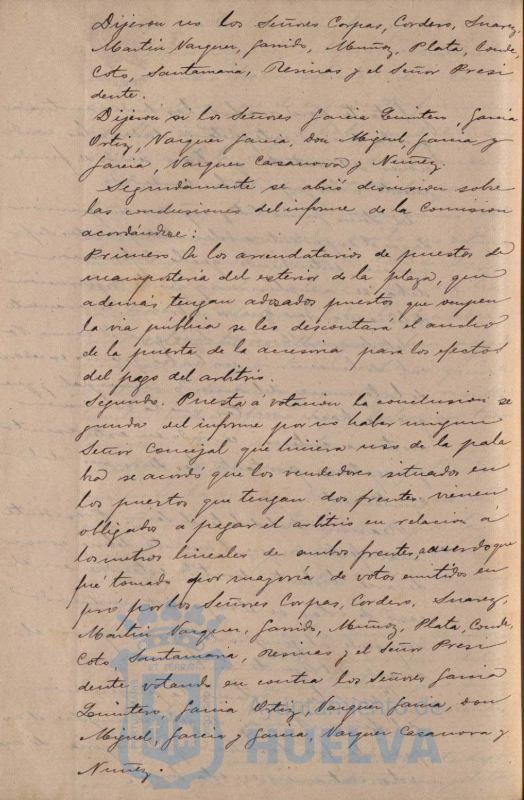 Dijeron no los Señores Corpas, Cordero, Suarez,
Martin Vazquez, Garrido, Muñoz, Plata, Conde,
Coto, Santamaria, Resinas y el Señor Presi
dente.
Dijeron si los Señores Garcia Quintero, Garcia
Ortiz, Vazquez Garcia, Don Miguel, Garcia y
Garcia, Vazquez Casanova y Nuñez.
Seguidamente se abrió discusion sobre
las conclusiones del informe de la Comision
acordándose:
Primero. A los arrendatarios de puestos de
mamposteria del exterior de la plaza, que
además tengan adosados puestos que ocupen
la via pública se les descontará el ancho
de la puerta de la accesoria para los efectos
del pago del arbitrio.
Segundo. Puesta á votacion la conclusion se
gunda del informe por no haber ningun
Señor Concejal que hiciera uso de la pala
bra se acordó que los vendedores situados en
los puestos que tengan dos frentes vienen
obligados á pagar el arbitrio en relacion á
los metros lineales de ambos frentes, acuerdo que
fué tomado por mayoría de votos emitidos en
pró por los Señores Corpas, Cordero, Suarez,
Martin Vazquez, Garrido, Muñoz, Plata, Conde,
Coto Santamaria, Resinas y el Señor Presi
dente votando en contra los Señores Garcia
Quintero, Garcia Ortiz, Vazquez Garcia, Don
Miguel, Garcia y Garcia, Vazquez Casanova y
Nuñez.
Ayuntamiento de
HUELVA